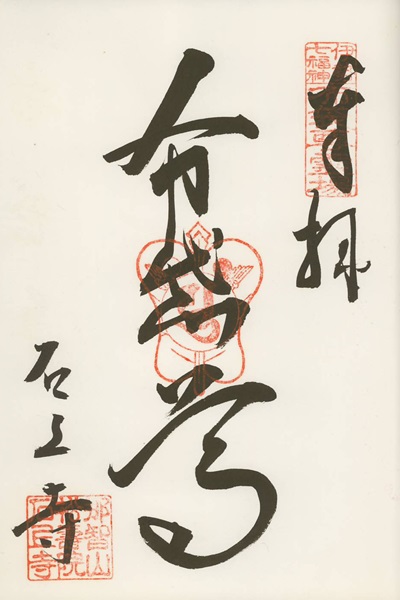 奉拝
布袋尊
石上寺
七福神
霊場
那智山
石上寺